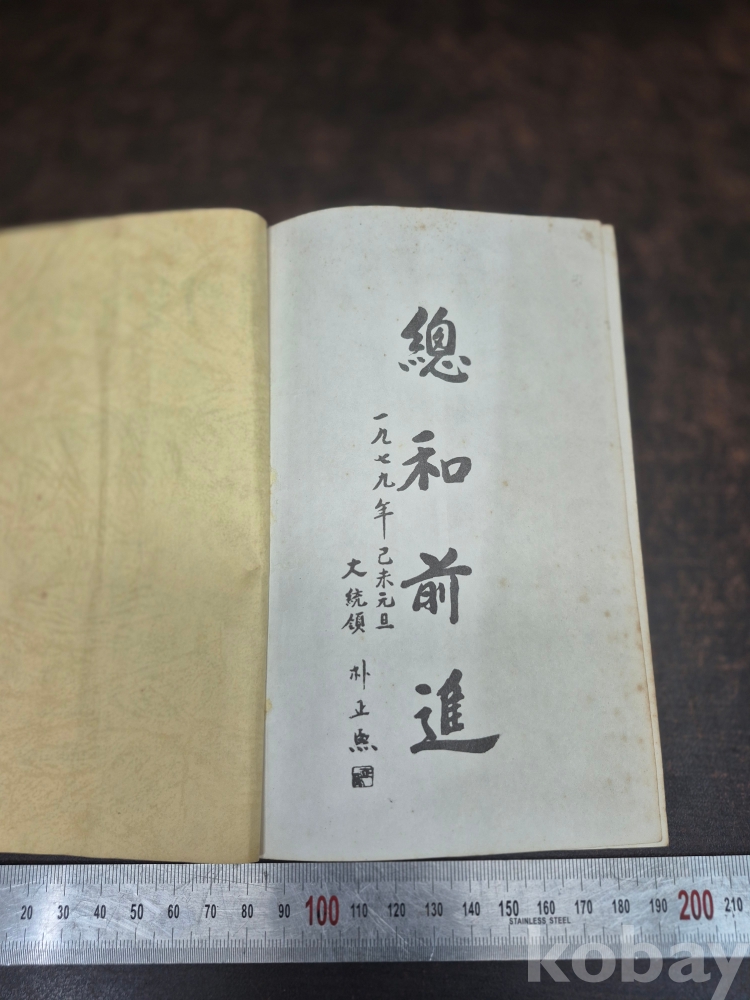 總和前進
一九七九年 己未元旦
大統領 朴正熙
20 30 40 50 60 70 80 90 100 110 120 130 140 150 160 170 180 190 200 210
STAINLESS STEEL
kobay